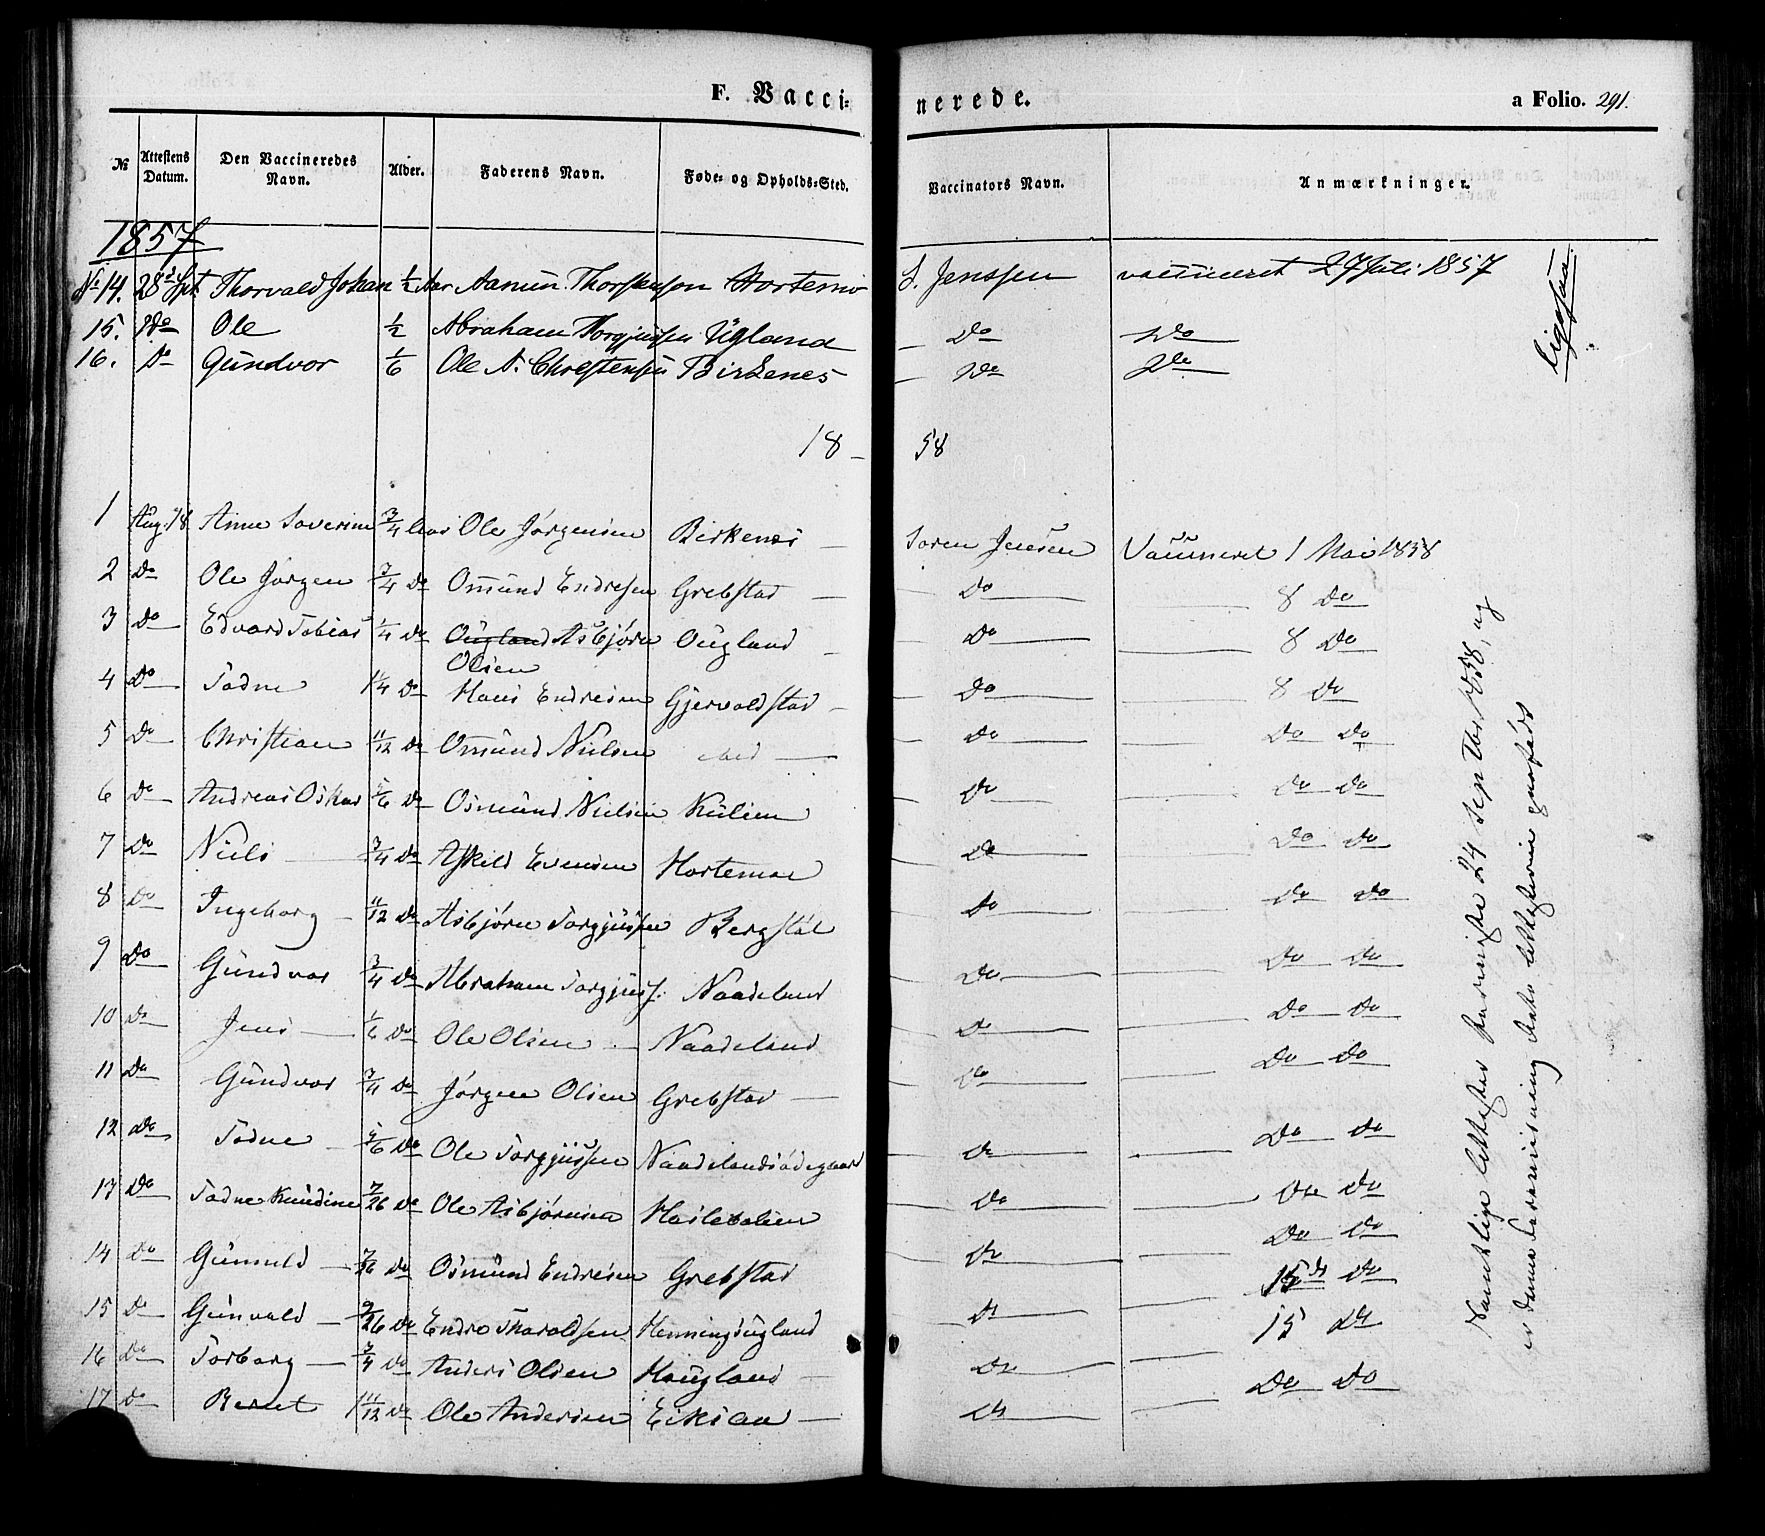 F. Vacci=
nerede.
a Folio. 291.
№ Attestens Datum. Den Vaccineredes Navn. Alder. Faderens Navn. Føde= og Opholds=Sted. Vaccinators Navn. Anmærkninger.
1857
No 14. 28de Sept. Thorvald Johan ½ Aar Aanun Thorstensen Hortemo S. Jenssen vaccineret 27 Juli 1857
15. Do Ole ½ Abraham Torgjussen Ugland Do Do
16. Do Gundvor 1/6 Ole N. Christensen Birkenes Do Do
18 - 58
1 Aug. 18 Anne Soverine 3/4 Aar Ole Jørgensen Birkenes Soren Jensen Vaccineret 1 Mai 1858
2 Do Ole Jørgen 3/4 Do Omund Endresen Grebstad Do 8 Do
3 Do Edvard Tobias 1/4 Do Ougland Asbjørn Olsen Ougland Do 8 Do
4 Do Tadne 1 1/4 Do Hans Endresen Gjervoldstad Do 8 Do
5 Do Christian 11/12 Do Omund Nielsen Do Do Do
6 Do Andreas Oskar 1/6 Do Osmund Nielsen Kulien Do Do Do
7 Do Niels 3/4 Do Askild Evensen Hortemoe Do Do Do
8 Do Ingeborg 11/12 Do Asbjørn Torgjussen Bergstøl Do Do Do
9 Do Gundvor 3/4 Do Abraham Torgjuss. Naadeland Do Do Do
10 Do Jens 1/6 Do Ole Olsen Naadeland Do Do Do
11 Do Gundvor 3/4 Do Jørgen Olsen Grebstad Do Do Do
12 Do Tadne 5/6 Do Ole Torgjussen Naadelandsødegaard Do Do Do
13 Do Tadne Kundine 7/26 Do Ole Asbjørnsen Do Do Do
14 Do Gunnuld 7/26 Do Osmund Endresen Grebstad Do Do Do
15 Do Gunvald 9/26 Do Endre Haroldsen Henningsugland Do 15de Do
16 Do Torborg 3/4 Do Anders Olsen Haugland Do 15 Do
17 Do Bernt 1 11/12 Do Ole Andersen Eiksaa Do Do Do
Ligesaa
Samtlige Attester 24 Septbr 1858, og